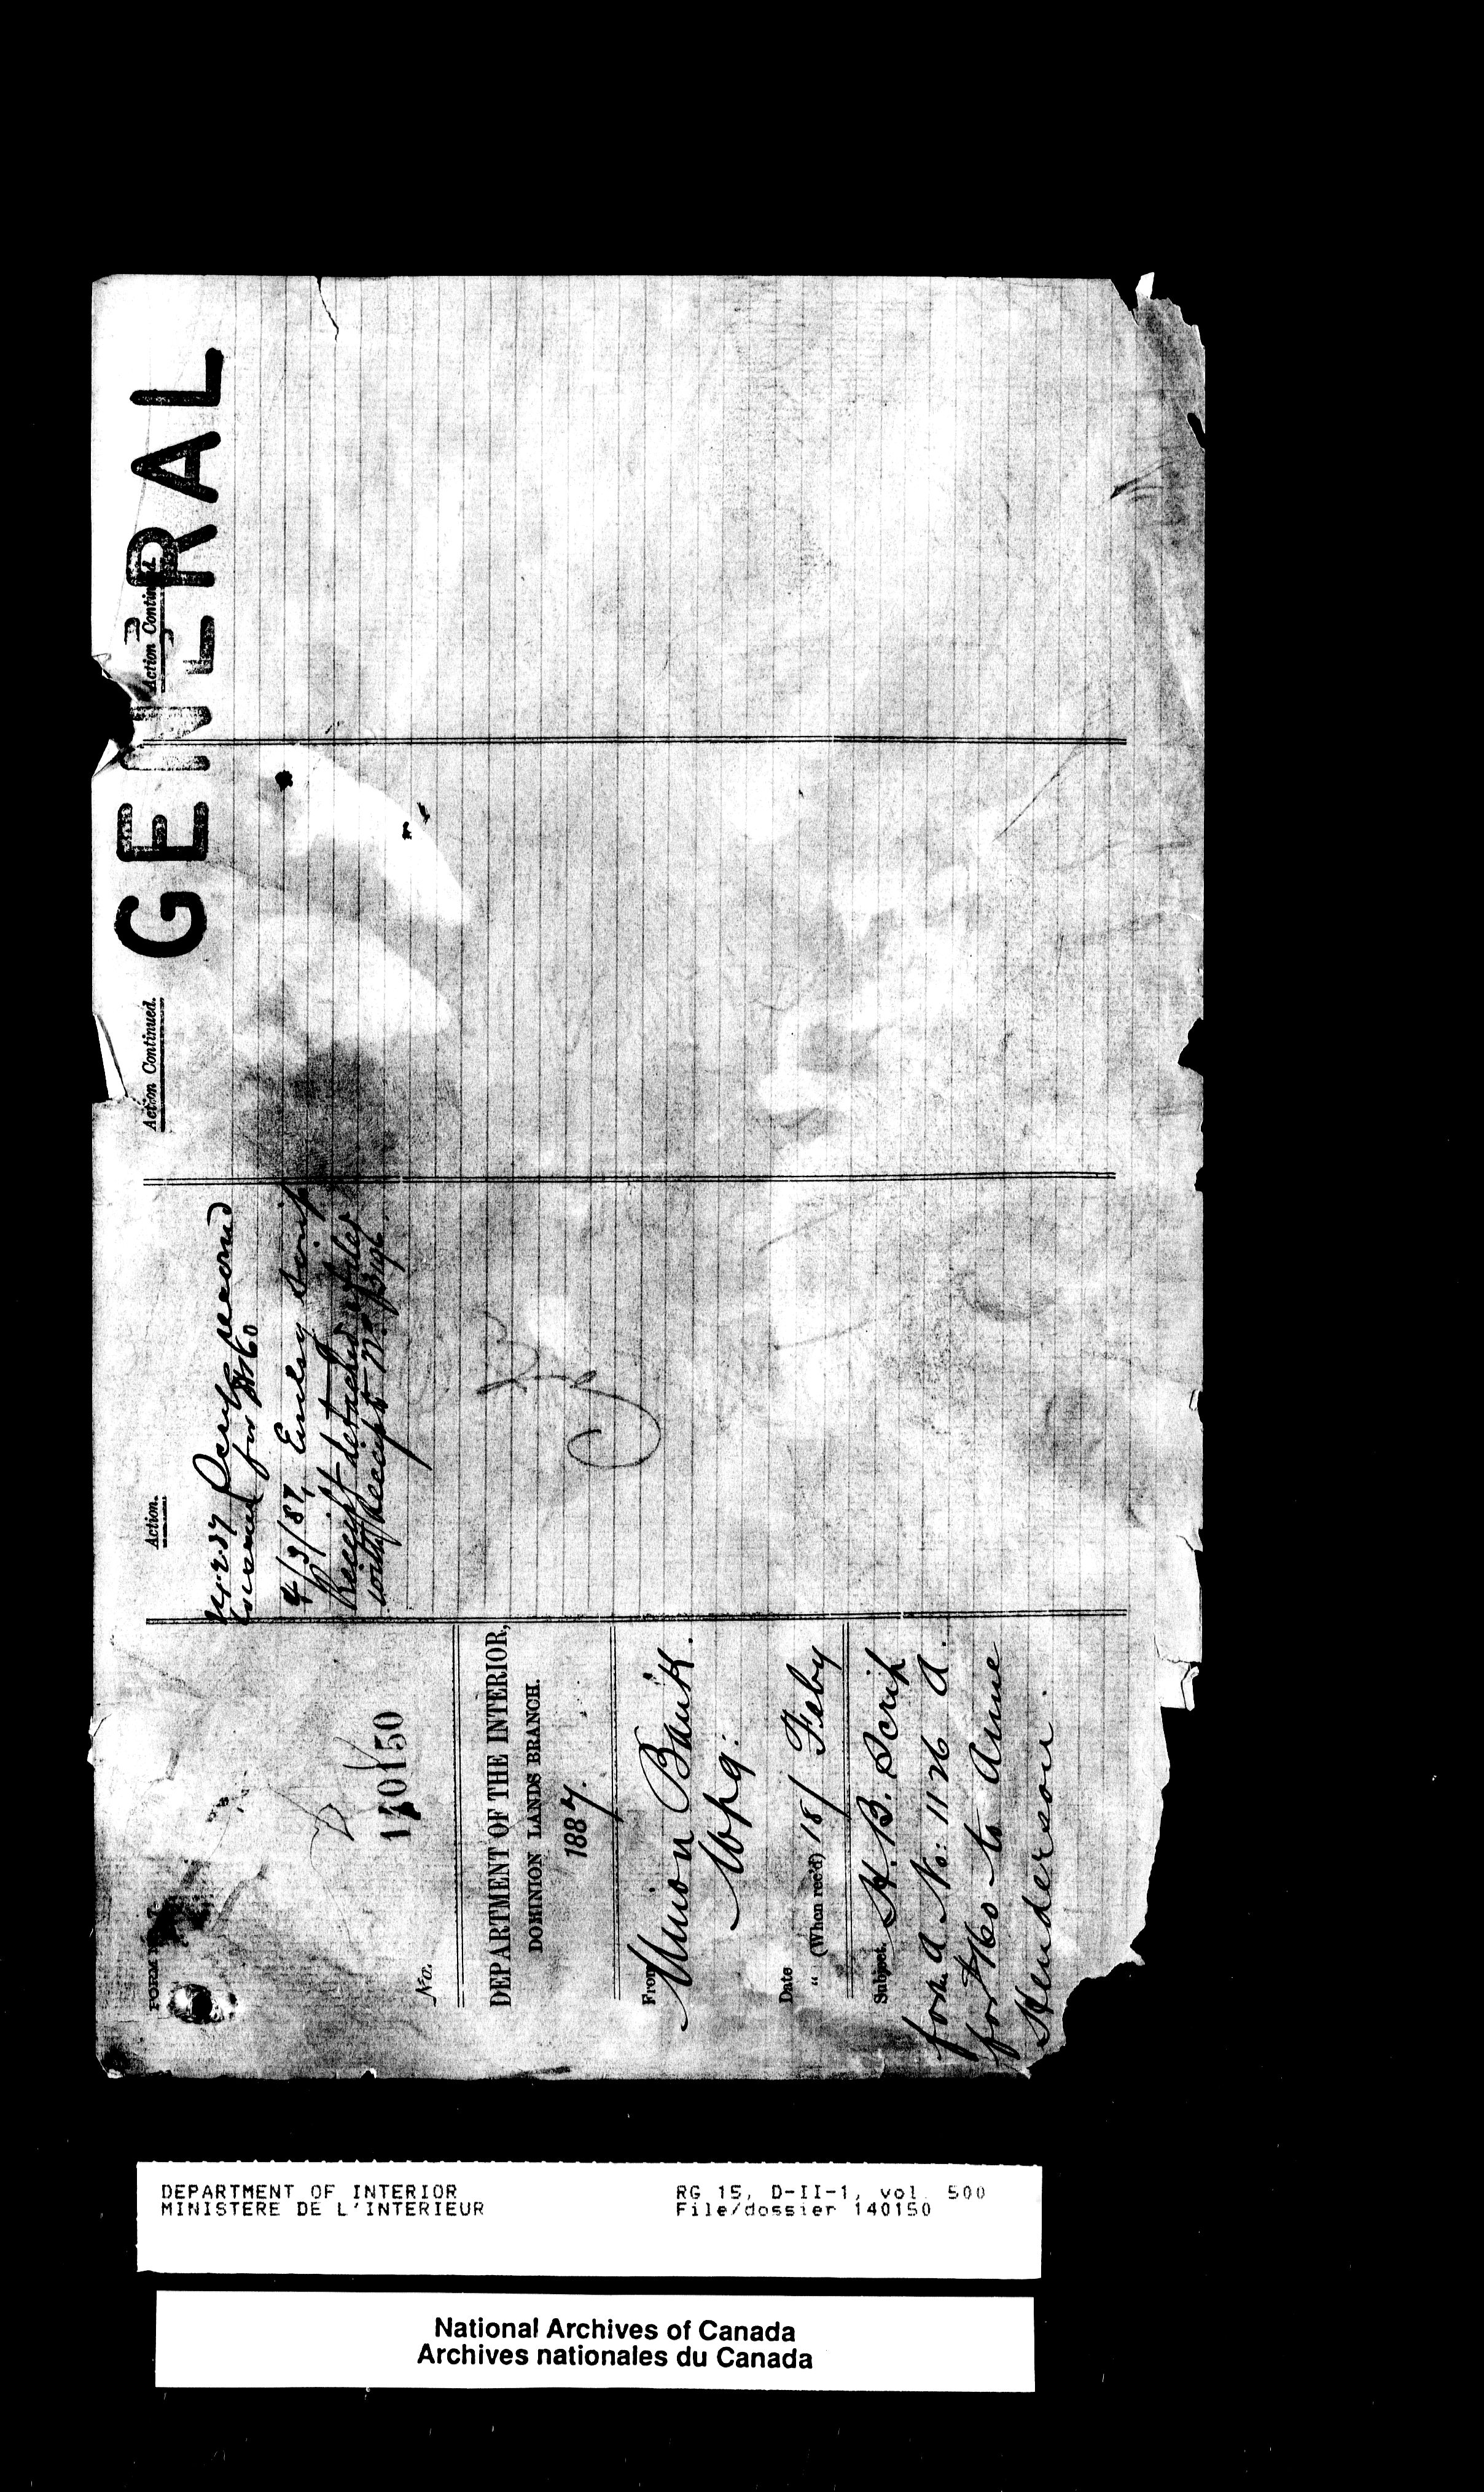 GENERAL
FORM
No.
140150
DEPARTMENT OF THE INTERIOR,
DOMINION LANDS BRANCH.
1887.
From
Union Bank.
Wpg.
Date
" (When rec'd) 18/ Feby
Subject. H. B. Scrip
form A. No: 1126 A.
for $160 to Anne
Henderson.
Action.
for $160
4/3/87, Emily Scrip
Receipt detached & filed
with Receipt
Action Continued.
Action Continued.
DEPARTMENT OF INTERIOR
MINISTERE DE L'INTERIEUR
RG 15, D-II-1, vol. 500
File/dossier 140150
National Archives of Canada
Archives nationales du Canada